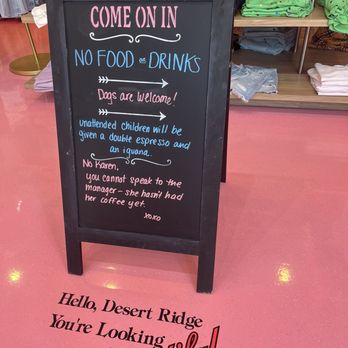 COME ON IN
NO FOOD or DRINKS
Dogs are Welcome!
unattended children will be
given a double espresso and
an iguana.
No Karen,
you cannot speak to the
manager - she hasn't had
her coffee yet.
xoxo
Hello, Desert Ridge
You're Looking